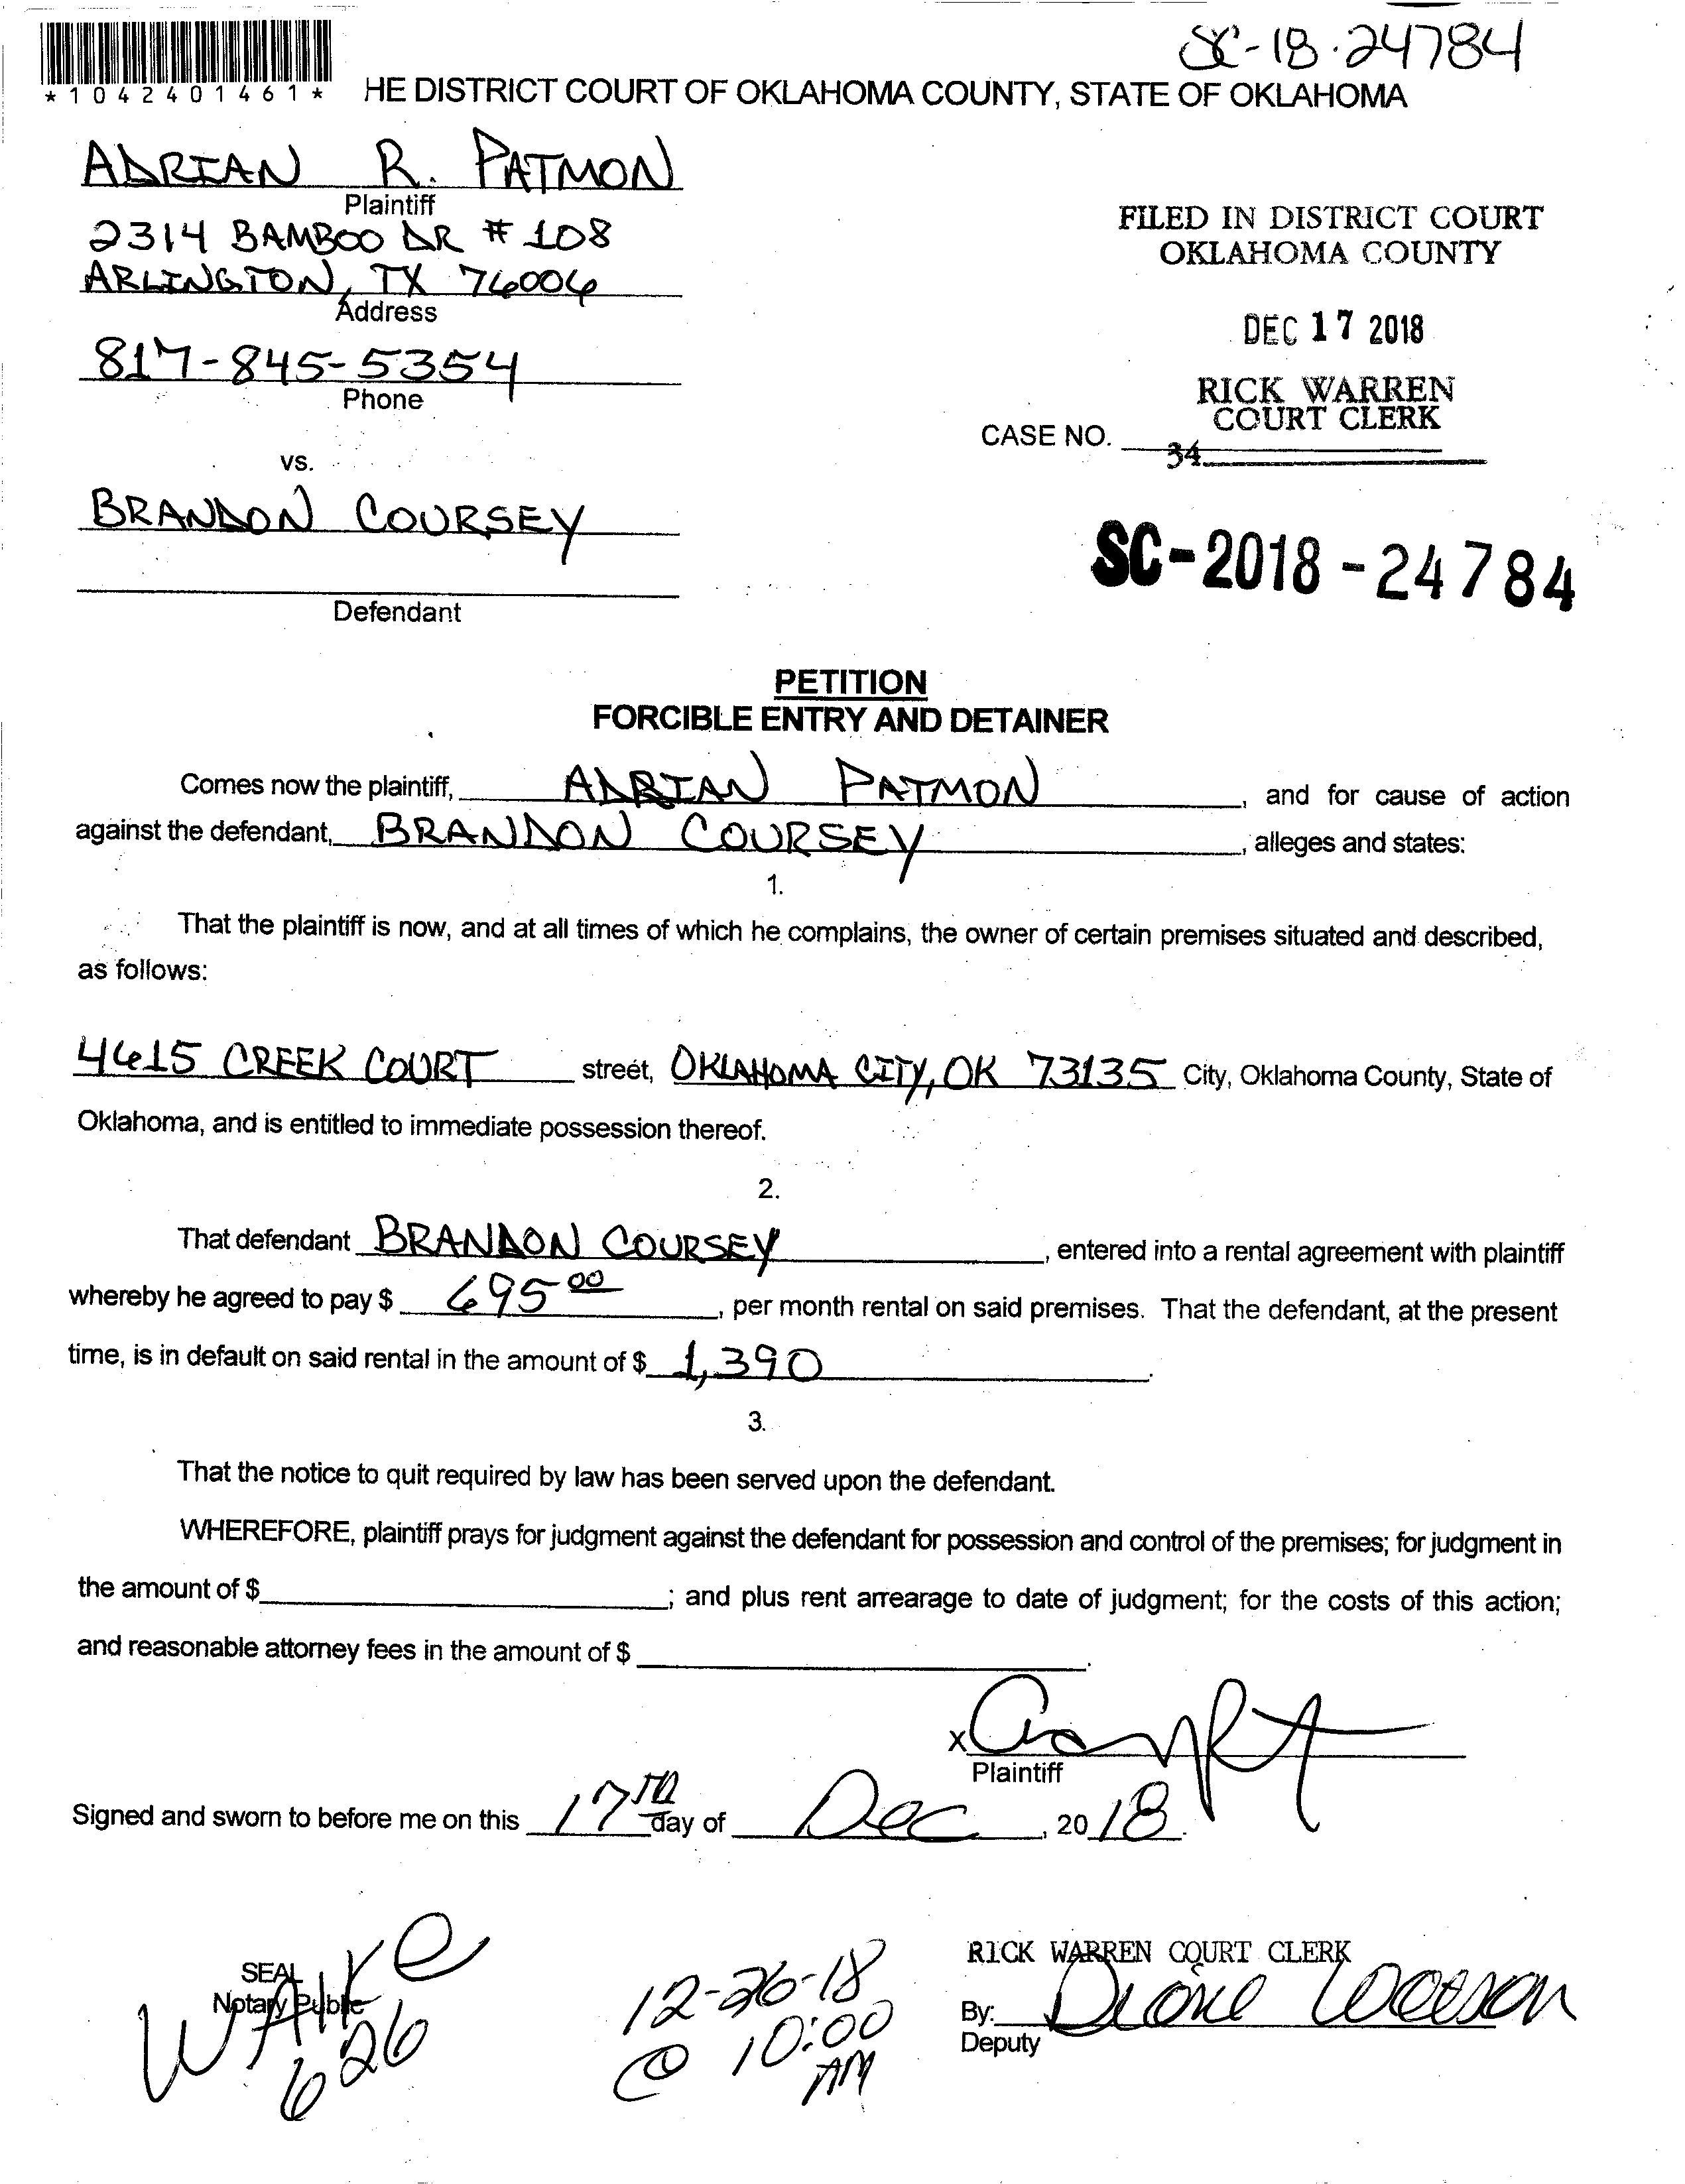 SC-18-24784
*1042401461*
HE DISTRICT COURT OF OKLAHOMA COUNTY, STATE OF OKLAHOMA
ADRIAN R. PATMON
Plaintiff
2314 BAMBOO DR # 108
ARLINGTON, TX 76006
Address
817-845-5354
Phone
vs.
BRANDON COURSEY
Defendant
FILED IN DISTRICT COURT
OKLAHOMA COUNTY
DEC 17 2018
RICK WARREN
COURT CLERK
CASE NO.
34
SC-2018-24784
PETITION
FORCIBLE ENTRY AND DETAINER
Comes now the plaintiff, ADRIAN PATMON, and for cause of action
against the defendant, BRANDON COURSEY, alleges and states:
1.
That the plaintiff is now, and at all times of which he complains, the owner of certain premises situated and described,
as follows:
4615 CREEK COURT street, OKLAHOMA CITY, OK 73135 City, Oklahoma County, State of
Oklahoma, and is entitled to immediate possession thereof.
2.
That defendant BRANDON COURSEY, entered into a rental agreement with plaintiff
whereby he agreed to pay $ 695 00, per month rental on said premises. That the defendant, at the present
time, is in default on said rental in the amount of $ 1,390.
3.
That the notice to quit required by law has been served upon the defendant.
WHEREFORE, plaintiff prays for judgment against the defendant for possession and control of the premises; for judgment in
the amount of $ ; and plus rent arrearage to date of judgment; for the costs of this action;
and reasonable attorney fees in the amount of $ .
X
Plaintiff
Signed and sworn to before me on this 17TH day of Dec, 2018.
SEAL
Notary Public
WALKE
626
12-26-18
@ 10:00
AM
RICK WARREN COURT CLERK
By:
Deputy